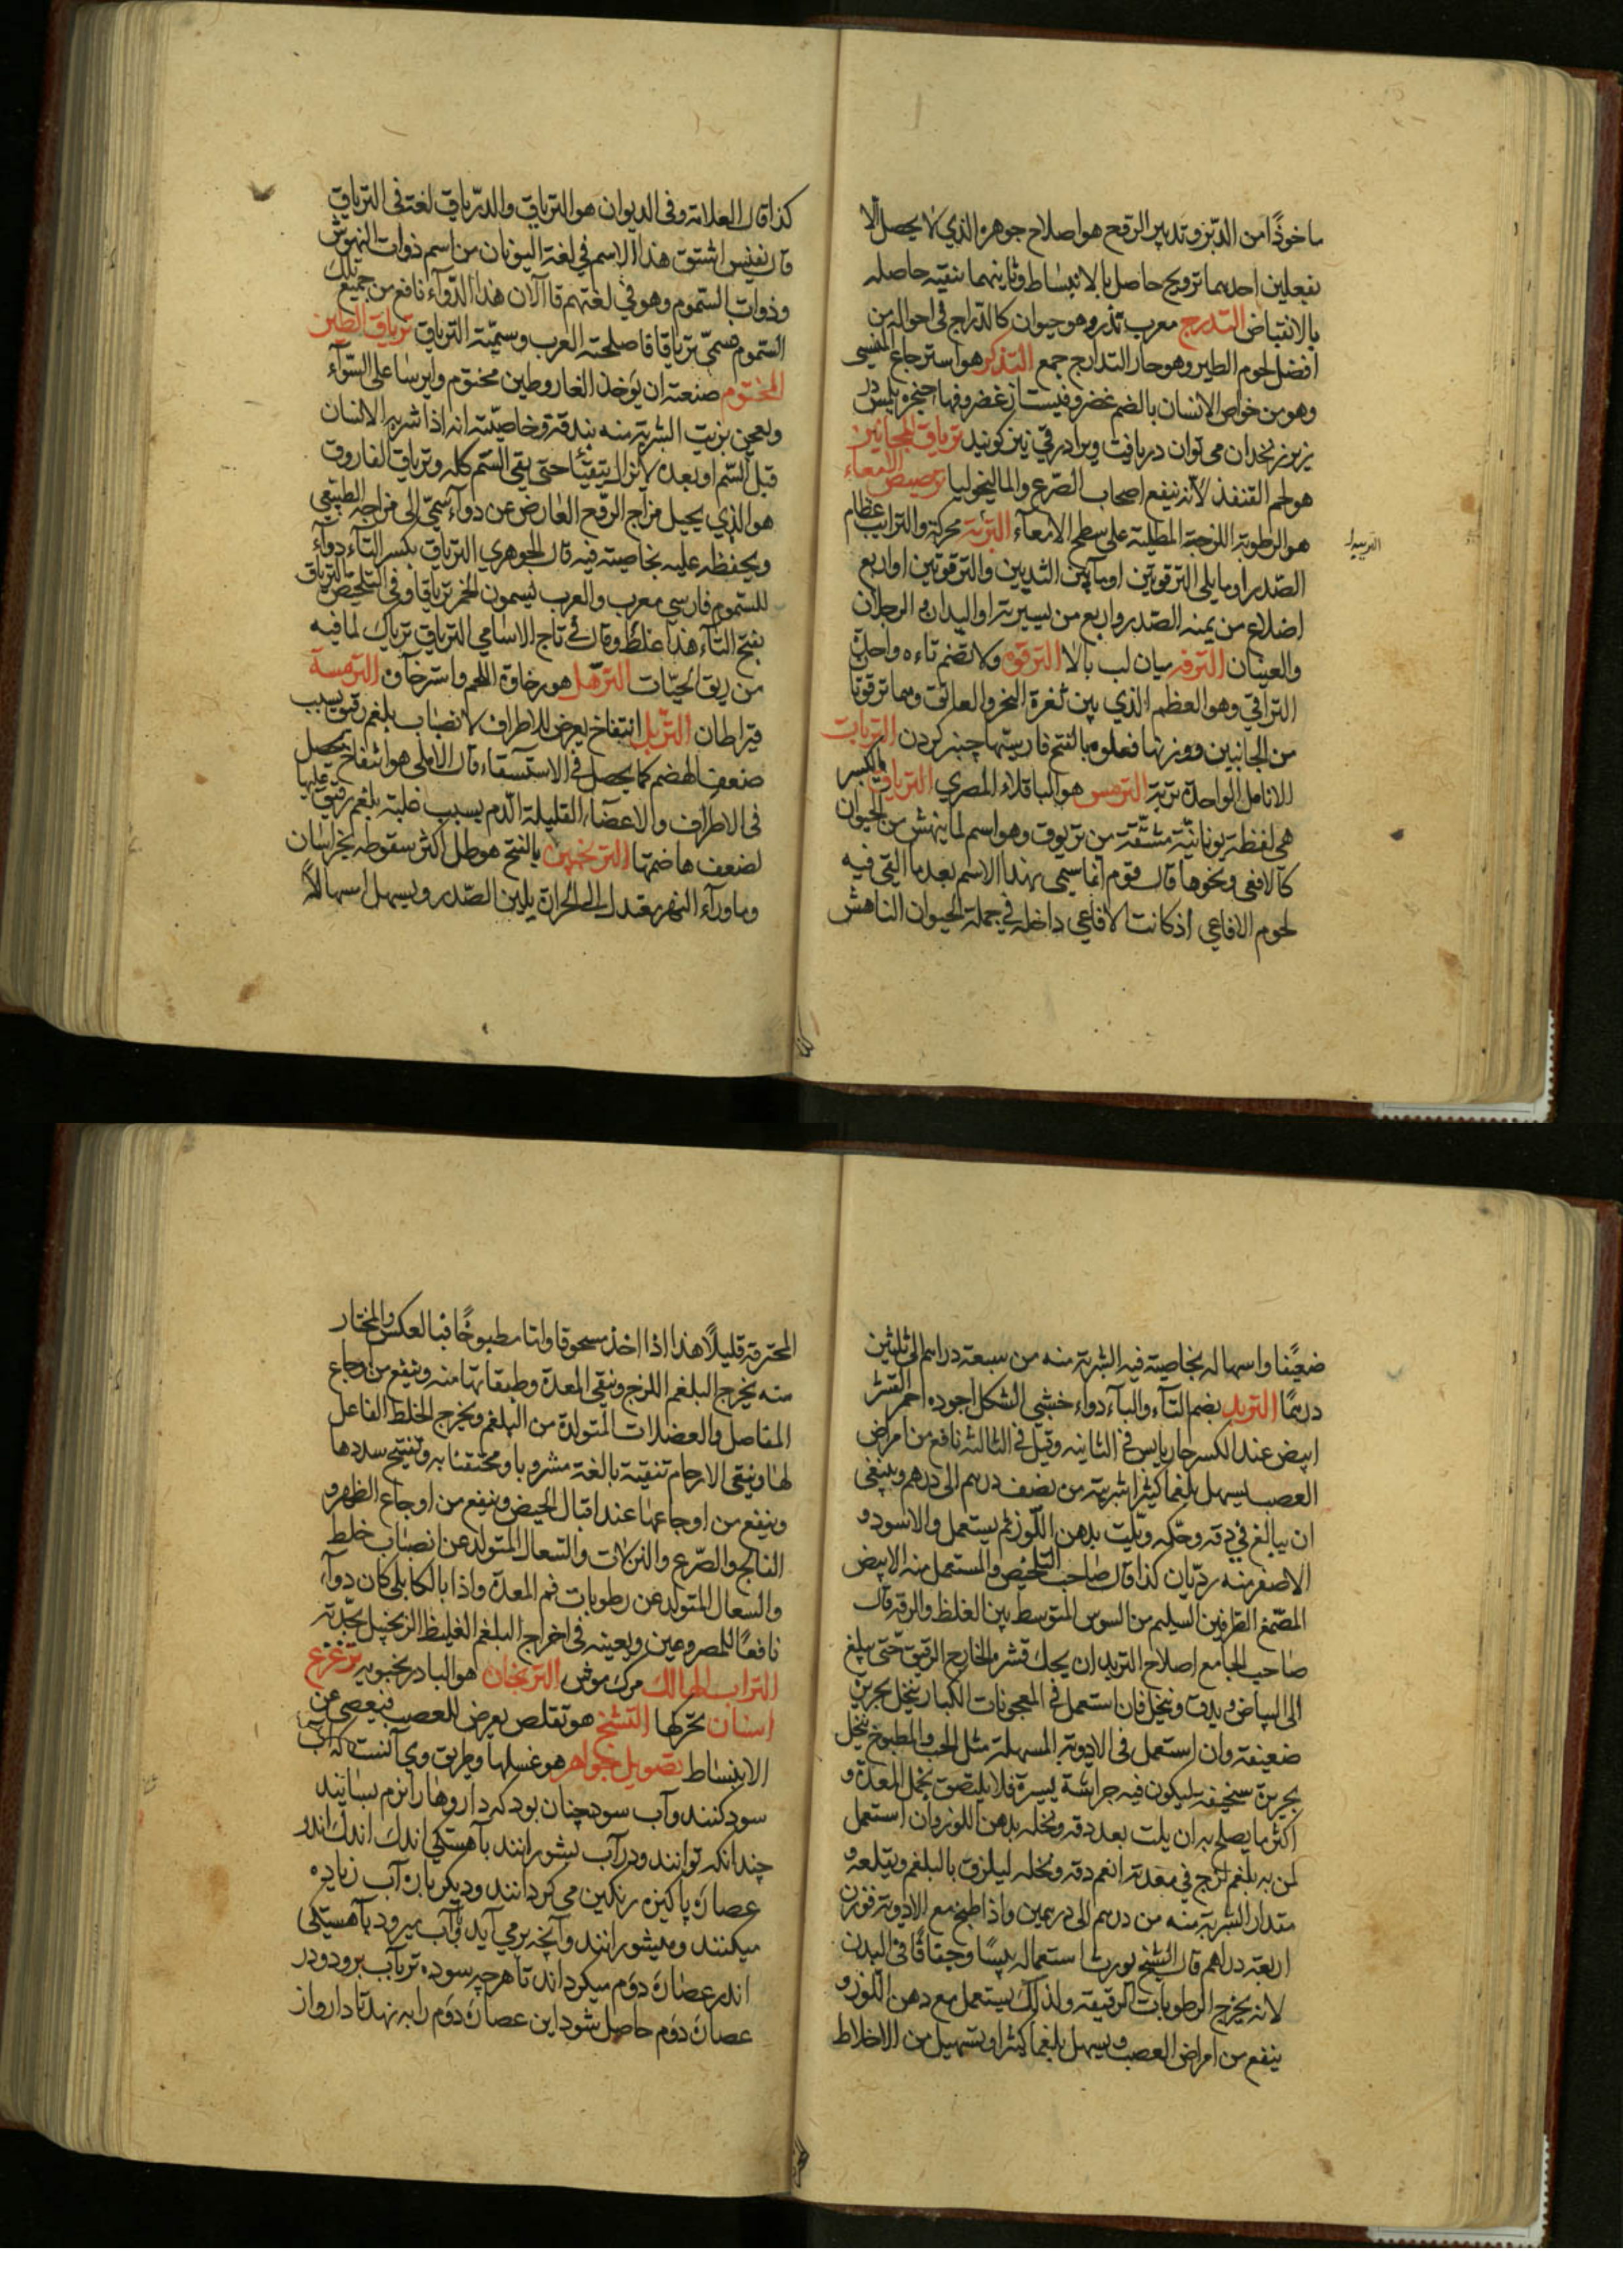 ماخوذًا من الدبر وتدبير الروح هو اصلاح جوهره الذي لا يحصل الا
بفعلين احدهما ترويح حاصل بالانبساط وثانيهما تنقيه حاصله
بالانقباض التدرج معرب تذرو وهو حيوان كالدراج في احواله من
افضل لحوم الطير وهو حار التدارج جمع التذكر هو استرجاع المنسى
وهو من خواص الانسان بالضم غضروفيست از غضروفها حنجره بلمس در
زير زنخدان مى توان دريافت ويرا درقي نيز كويند ترياق المجانين
هو لحم القنفذ لانه ينفع اصحاب الصرع والماليخوليا ترصيص الامعاء
هو الرطوبة اللزجة المطلية على سطح الامعاء التربة محركة والترايب عظام
الصدر او ما يلى الترقوتين او ما بين الثديين والترقوتين او اربع
اضلاع من يمنه الصدر واربع من يسيرته او اليدان والرجلان
والعينان الترفه ميان لب بالا الترقوه ولا تضم تاءه واحدة
التراقي وهو العظم الذي بين ثغرة النحر والعاتق وهما ترقوتا
من الجانبين ووزنها فعلوه بالفتح فارسيتها چنبر كردن التربات
الانامل الواحدة تربة الترمس هو الباقلاء المصري الترياق بالكسر
هى لفظة يونانية مشتقة من تريوق وهو اسم لما ينهش من الحيوان
كالافعى ونحوها قال قوم انما سمى بهذا الاسم بعد ما القى فيه
لحوم الافاعي اذ كانت الافاعي داخله في جملة الحيوان الناهش
كذا قال العلامة وفى الديوان هو الترياق والدرياق لغة فى الترياق
قال نفيس اشتق هذا الاسم في لغة اليونان من اسم ذوات النهوش
وذوات السموم وهو في لغتهم قاآلان هذا الدوآء نافع من جميع تلك
السموم سمى ترياقا فاصلحته العرب وسميته الترياق ترياق الطين
المختوم صنعته ان يؤخذ الغار وطين مختوم وايرسا على السوآء
ويعجن بزيت الشربة منه بندقة وخاصيته انه اذا شربه الانسان
قبل السم او بعده لا يزال يتقيأ حتى ينقى السم كله وترياق الفاروق
هو الذي يحيل مزاج الروح العارض عن دوآء سمى الى مزاجه الطبيعى
ويحفظه عليه بخاصيته فيه قال الجوهري الترياق بكسر التآء دوآء
للسموم فارسى معرب والعرب ليسمون الخمر ترياقا وفى التلخيص الترياق
بفتح التآء هذا غلط وقال في تاج الاسامي الترياق ترياك لما فيه
من ريق الحيات الترهل هو رخاوة اللحم واسترخاوه الترمسة
قيراطان التربل انتفاخ يعرض للاطراف لانصباب بلغم رقيق بسبب
ضعف الهضم كما يحصل فى الاستسقاء قال الاملى هو انتفاخ يحصل
فى الاطراف والاعضاء القليلة الدم بسبب غلبة بلغم رقيق عليها
لضعف هاضمتها الترنجبين بالفتح هو طل اكثر سقوطه بخراسان
وماورآء النهر معتدل الى الحرارة يلين الصدر ويسهل اسهالاً
ضعيفا واسهاله بخاصيته فيه الشربة منه من سبعة دراهم الى ثلثين
درهمًا التربد بضم التآء والبآء دواء خشبى الشكل اجوده احمر القشر
ابيض عند الكسر حار يابس في الثانيه وقيل في الثالثه نافع من امراض
العصب يسهل بلغما كثيرا شربته من نصف درهم الى درهم وينبغى
ان يبالغ في دقه وحكه ويلت بدهن اللوز ثم يستعمل والاسود و
الاصفر منه رديان كذا قال صاحب التلخيص والمستعمل منه الابيض
المصمغ الطرفين السليم من السوس المتوسط بين الغلظ والرقه قال
صاحب الجامع اصلاح التربد ان يحك قشره الخارج الرقيق حتى يبلغ
الى البياض ويدق وينخل فان استعمل في المعجونات الكبار ينخل بحريرة
ضعيفة وان استعمل فى الادوية المسهلة مثل الحب والمطبوخ ينخل
بحريرة سخيفة ليكون فيه جراشة يسيرة فلا يلتصق بخمل المعدة و
اكثر ما يصلح به ان يلت بعد دقه ونخله بدهن اللوز وان استعمل
لمن به بلغم لزج في معدته انعم دقه ونخله ليلزق بالبلغم ويقلعه و
مقدار الشربة منه من درهم الى درهمين واذا طبخ مع الادوية فوزن
اربعة دراهم قال الشيخ يورث استعماله يبسًا وجفافًا فى البدن
لانه يخرج الرطوبات الرقيقة ولذلك يستعمل مع دهن اللوز و
ينفع من امراض العصب ويسهل بلغما كثيرا ويسهل من الاخلاط
المحترقة قليلًا هذا اذا اخذ مسحوقا واما مطبوخًا فبالعكس والمختار
منه يخرج البلغم اللزج وينقى المعدة وطبقاتها منه وينفع من اوجاع
المفاصل والعضلات المتولدة من البلغم ويخرج الخلط الفاعل
لها وينقى الارحام تنقية بالغة مشروبا ومحتقنا به وتفتيح سددها
وينفع من اوجاعها عند اقبال الحيض وينفع من اوجاع الظهر و
الفالج والصرع والنزلات والسعال المتولد عن انصباب خلط
والسعال المتولد عن رطوبات فم المعدة واذا بالكابلى كان دوآء
نافعًا للمصروعين ويعينه فى اخراج البلغم الغليظ الزنجبيل بحدته
التراب الهالك مرك موش الترنجان هو البادرنجبويه تزعزع
اسنان تحركها التشنج هو تقلص يعرض للعصب فيعصى عن
الانبساط تصويل جواهر هو غسلها وطريق وي آنست كه آب
سود كنند وآب سود چنان بود كه داروها را نرم بسايند
چندانكه توانند ودر آب بشورانند باهستكى اندك اندك اندر
عصاره پاكيزه رنكين مى كردانند وديكر باره آب زياده
ميكنند وميشورانند وآنچه برمي آيد بآب ميرود باهستكى
اندر عصاره دوم ميكرداند تا هرچه سوده تر بآب برود ودر
عصاره دوم حاصل شود اين عصاره دوم را بنهند تا دارو از